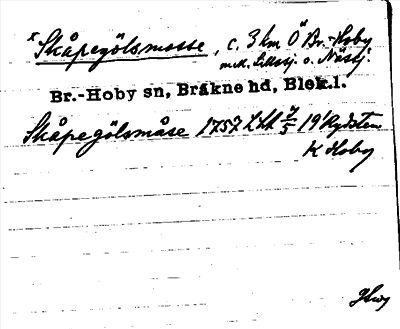 x Skåpegölsmosse, c. 3 km Ö Br.-Hoby
mek. Lillsj. o. Nässj.
Br.-Hoby sn, Bräkne hd, Blek.l.
Skåpegölsmåse 1757 LHA 7/5 19 Rydsten
K Hoby